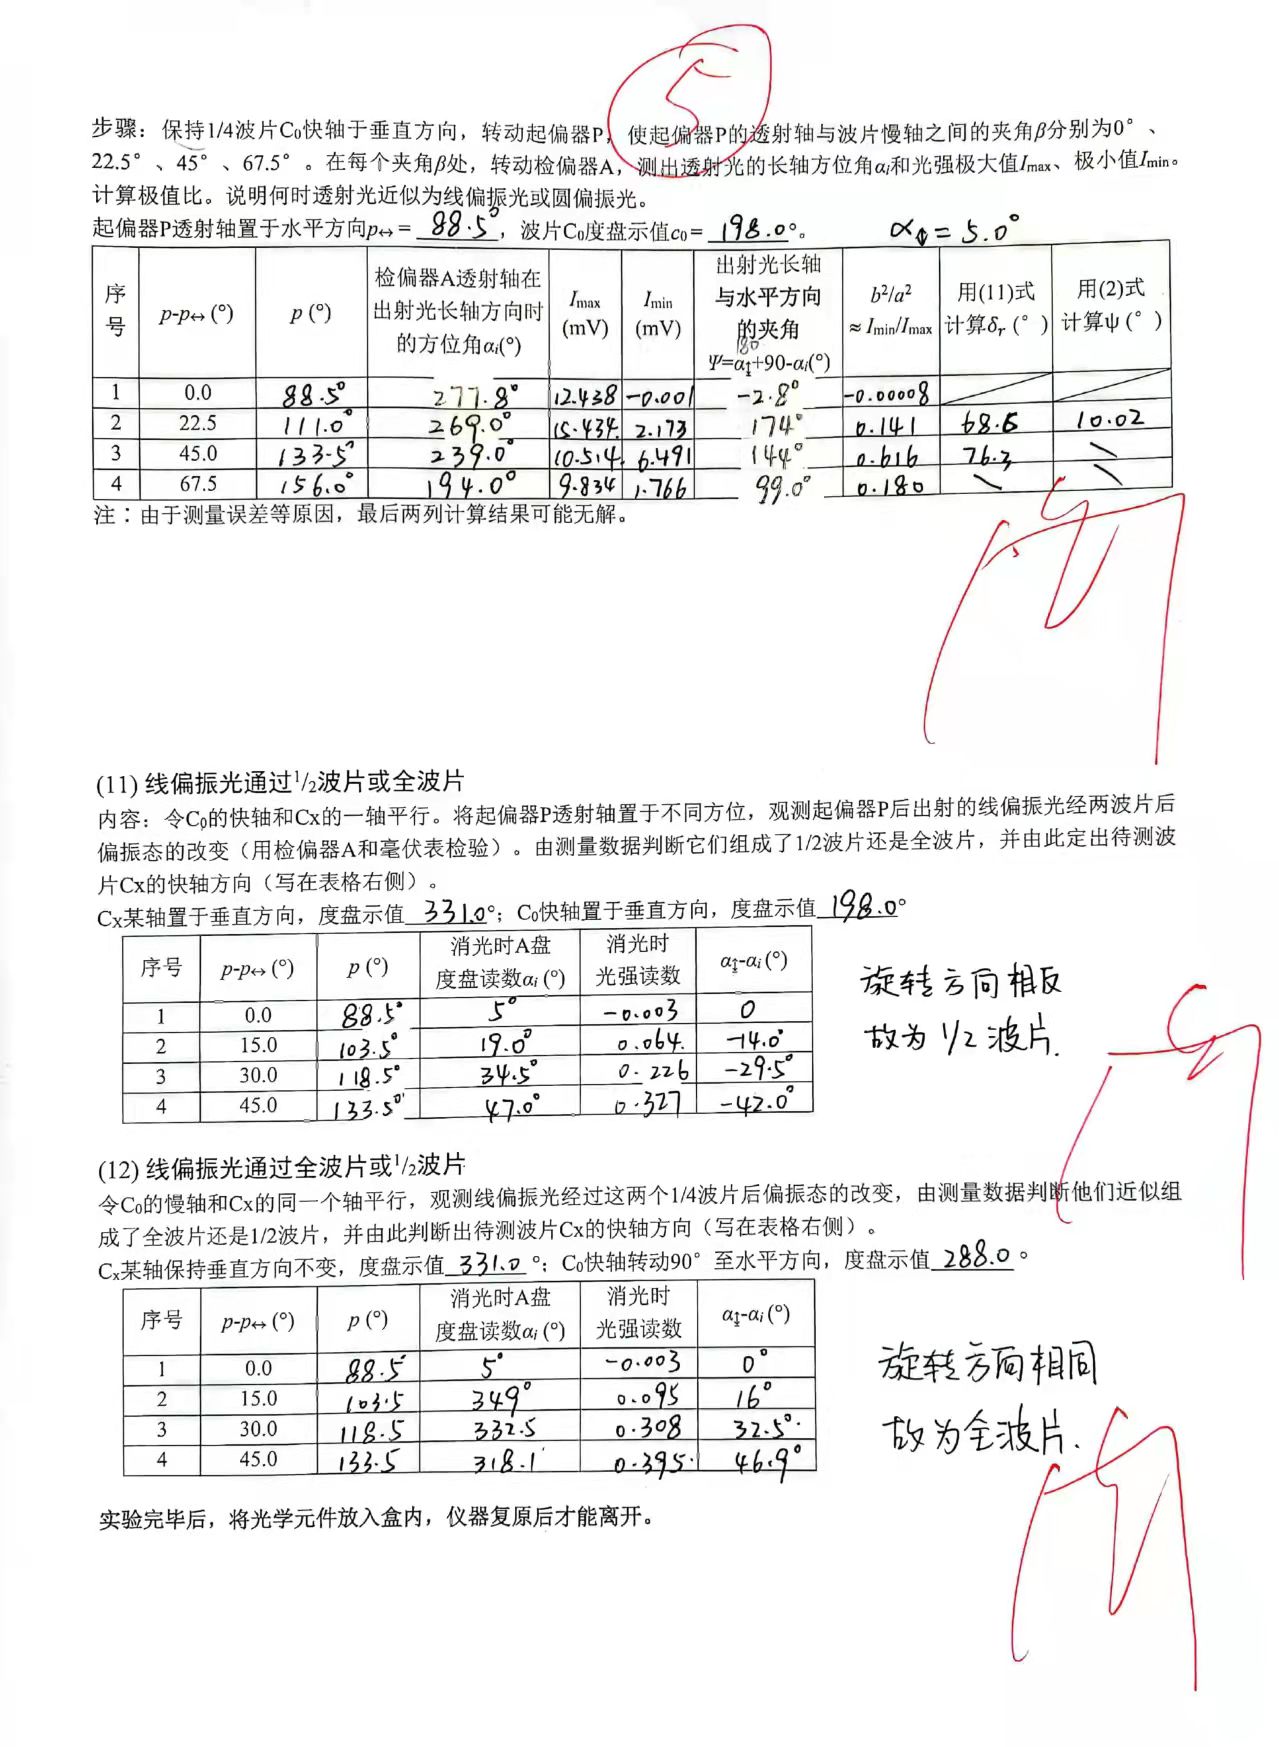 5
步骤：保持1/4波片C₀快轴于垂直方向，转动起偏器P，使起偏器P的透射轴与波片慢轴之间的夹角β分别为0°、
22.5°、45°、67.5°。在每个夹角β处，转动检偏器A，测出透射光的长轴方位角αᵢ和光强极大值Imax、极小值Imin。
计算极值比。说明何时透射光近似为线偏振光或圆偏振光。
起偏器P透射轴置于水平方向p↔= 88.5°，波片C₀度盘示值c₀= 198.0°。 α↕=5.0°
序号 p-p↔(°) p(°) 检偏器A透射轴在出射光长轴方向时的方位角αᵢ(°) Imax(mV) Imin(mV) 出射光长轴与水平方向的夹角 180 Ψ=α↕+90-αᵢ(°) b²/a²≈Imin/Imax 用(11)式计算δr(°) 用(2)式计算ψ(°)
1 0.0 88.5° 277.8° 12.438 -0.001 -2.8° -0.00008
2 22.5 111.0° 269.0° 15.434 2.173 174° 0.141 68.6 10.02
3 45.0 133.5° 239.0° 10.514 6.491 144° 0.616 76.3 \
4 67.5 156.0° 194.0° 9.834 1.766 99.0° 0.180 \ \
注：由于测量误差等原因，最后两列计算结果可能无解。
(11) 线偏振光通过1/2波片或全波片
内容：令C₀的快轴和Cx的一轴平行。将起偏器P透射轴置于不同方位，观测起偏器P后出射的线偏振光经两波片后
偏振态的改变（用检偏器A和毫伏表检验）。由测量数据判断它们组成了1/2波片还是全波片，并由此定出待测波
片Cx的快轴方向（写在表格右侧）。
Cx某轴置于垂直方向，度盘示值 331.0°；C₀快轴置于垂直方向，度盘示值 198.0°
序号 p-p↔(°) p(°) 消光时A盘度盘读数αᵢ(°) 消光时光强读数 α↕-αᵢ(°)
1 0.0 88.5° 5° -0.003 0
2 15.0 103.5° 19.0° 0.064 -14.0°
3 30.0 118.5° 34.5° 0.226 -29.5°
4 45.0 133.5° 47.0° 0.327 -42.0°
旋转方向相反
故为1/2波片.
(12) 线偏振光通过全波片或1/2波片
令C₀的慢轴和Cx的同一个轴平行，观测线偏振光经过这两个1/4波片后偏振态的改变，由测量数据判断他们近似组
成了全波片还是1/2波片，并由此判断出待测波片Cx的快轴方向（写在表格右侧）。
Cx某轴保持垂直方向不变，度盘示值 331.0 °；C₀快轴转动90°至水平方向，度盘示值 288.0 °
序号 p-p↔(°) p(°) 消光时A盘度盘读数αᵢ(°) 消光时光强读数 α↕-αᵢ(°)
1 0.0 88.5 5° -0.003 0°
2 15.0 103.5 349° 0.095 16°
3 30.0 118.5 332.5 0.308 32.5°
4 45.0 133.5 318.1 0.395 46.9°
旋转方向相同
故为全波片.
实验完毕后，将光学元件放入盒内，仪器复原后才能离开。